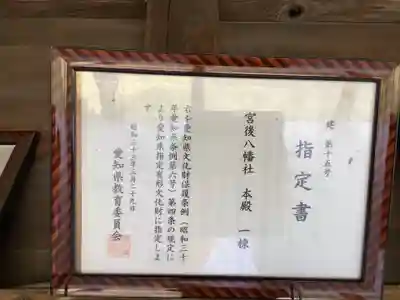 建第十五号
指定書
宮後八幡社 本殿 一棟
右を愛知県文化財保護条例(昭和三十
年愛知県条例第六号)第四条の規定に
より愛知県指定有形文化財に指定しま
す
昭和三十三年三月二十九日
愛知県教育委員会